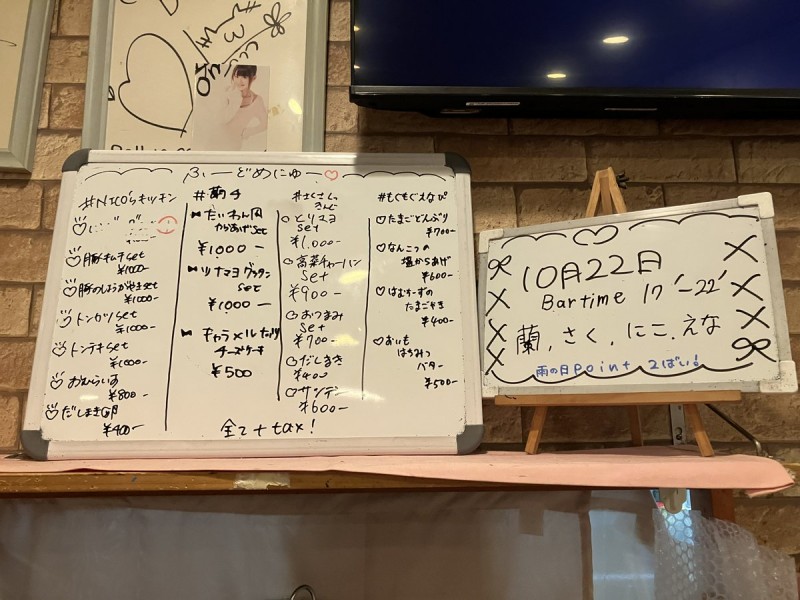 ふーどめにゅー♡
#NICO'sキッチン
豚キムチset
¥1000-
豚のしょうがやきset
¥1000-
トンカツset
¥1000-
トンテキset
¥1000-
おむらいす
¥800-
だしまき
¥400-
#蘭子
たいわん風
からあげset
¥1000-
ツナマヨグラタン
set
¥1000-
キャラメルナッツ
チーズケーキ
¥500
とりマヨ
set
¥1,000-
高菜チャーハン
set
¥900-
おつまみ
set
¥700-
だしまき
¥400
サンデー
¥600-
#もぐもぐえなぴ
たまごどんぶり
¥700-
なんこつの
塩からあげ
¥600-
はむちーずの
たまごやき
¥400-
おいも
はちみつ
バター
¥500-
全て+tax!
10月22日
Bartime 17'-22'
蘭,さく,にこ,えな
雨の日Point 2ばい!